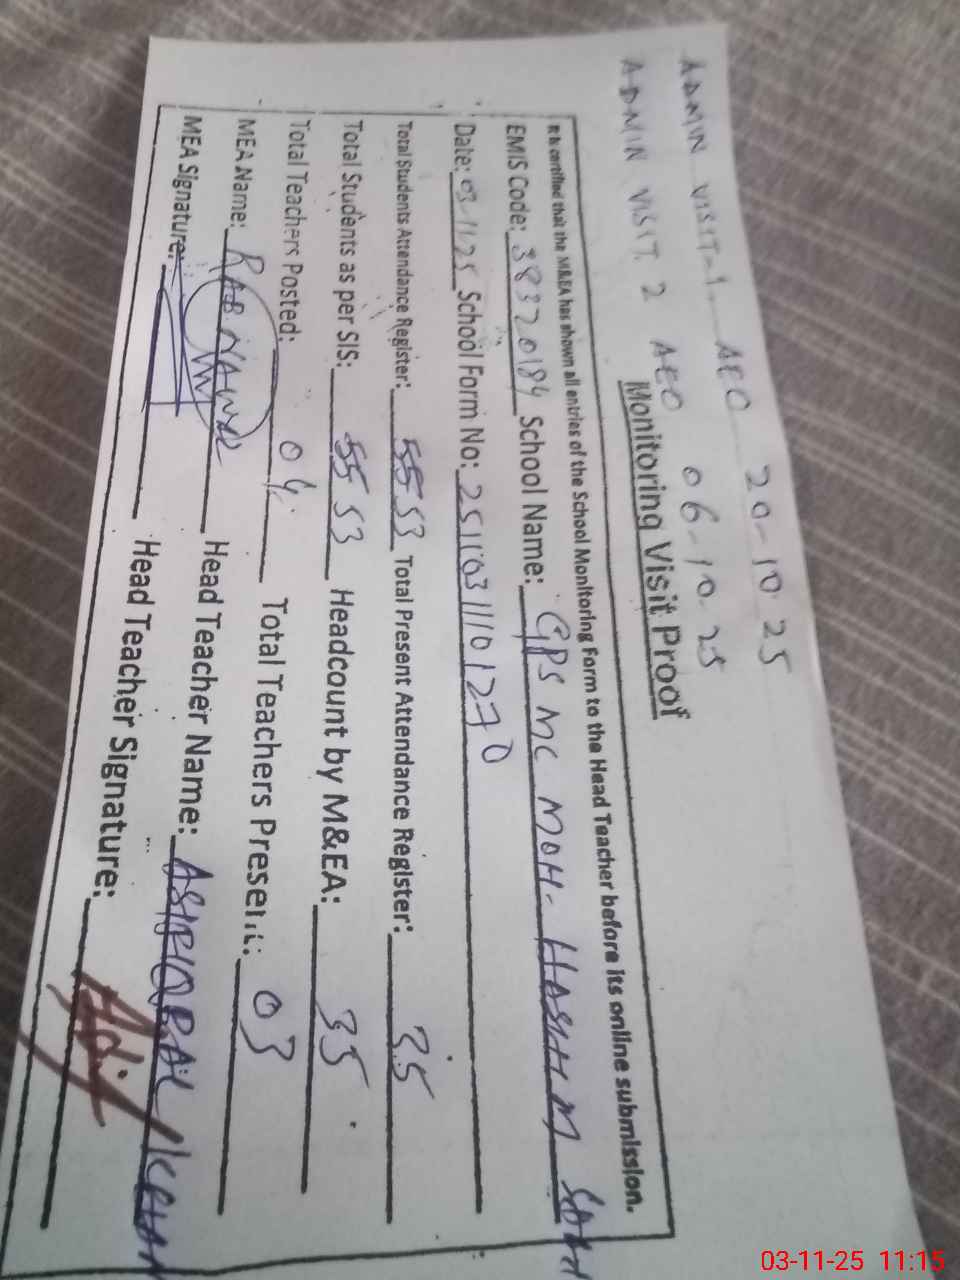 ADMIN VISIT-1 AEO 20-10-25
ADMIN VISIT. 2 AEO 06-10-25
Monitoring Visit Proof
It is certified that the M&EA has shown all entries of the School Monitoring Form to the Head Teacher before its online submission.
EMIS Code: 38320184 School Name: GPS MC MOH- HASHIM
Date: 03-11-25 School Form No:
Total Students Attendance Register: 53 Total Present Attendance Register: 35
Total Students as per SIS: 53 Headcount by M&EA: 35
Total Teachers Posted: 04 Total Teachers Present: 03
MEA Name: RAB NAWAZ Head Teacher Name: ASIF IQBAL KHAN
MEA Signature: Head Teacher Signature:
03-11-25 11:15